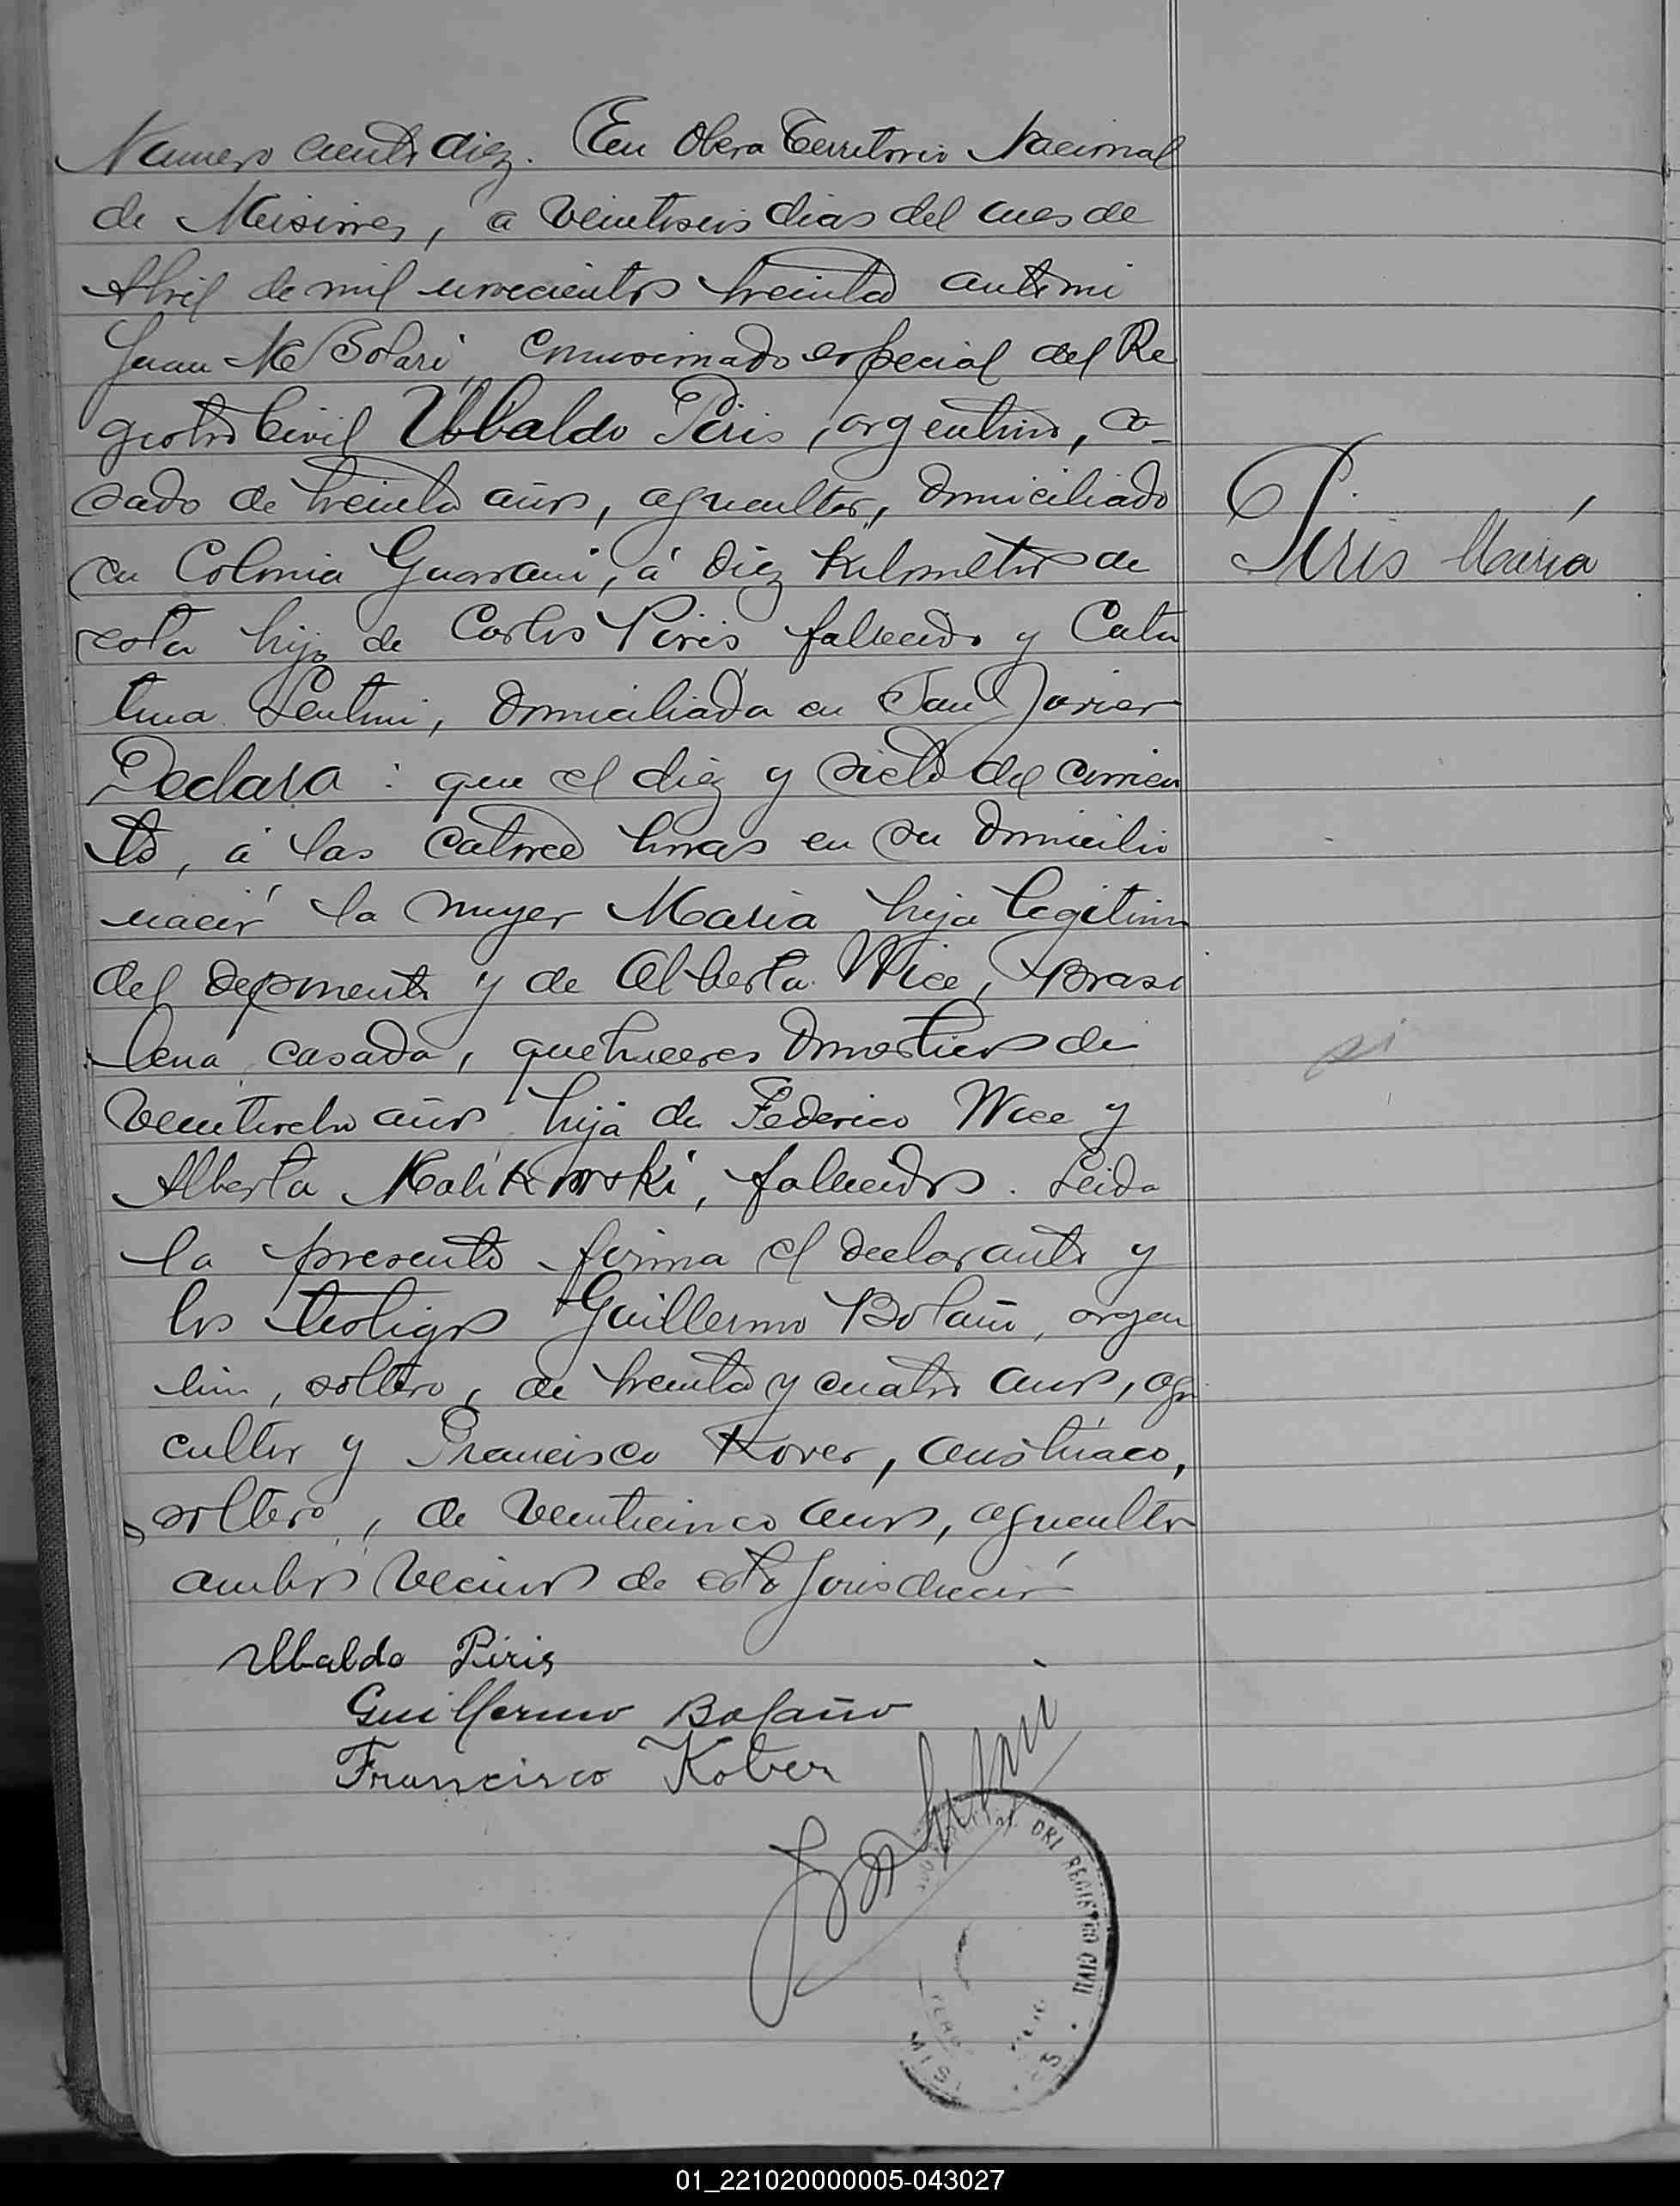 Numero ciento diez. En Obera Territorio Nacional
de Misiones, a veintiseis dias del mes de
Abril de mil novecientos treinta ante mi
Juan M Solari, comisionado especial del Re
gistro Civil Ubaldo Piris, argentino, ca-
sado de treinta años, agricultor, domiciliado
en Colonia Guarani, á diez kilometros de
esta hijo de Carlos Piris fallecido y Cata
lina Lentini, domiciliada en San Javier
Declara: que el diez y siete del corrien
te, á las catorce horas en su domicilio
nació la mujer Maria hija legitima
del deponente y de Alberta Wice, brasi
lena, casada, quehaceres domesticos de
veintiocho años hija de Federico Wice y
Alberta Kalikowski, fallecidos. Leida
la presente firma el declarante y
los testigos Guillermo Bolaño, argen
tino, soltero, de treinta y cuatro años, agri
cultor y Francisco Kover, austriaco,
soltero, de veinticinco años, agricultor
ambos vecinos de esta jurisdicción
Piris María
si
Ubaldo Piris
Guillermo Bolaño
Francisco Kober
DEL REGISTRO CIVIL
01_221020000005-043027